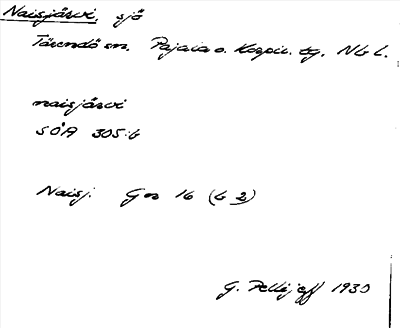 Naisjärvi, sjö
Tärendö sn. Pajala o. Korpil. tg. Nb l.
naisjärvi
SOÄ 305:6
Naisj. Gk 16 (b 2)
G. Pellijeff 1930